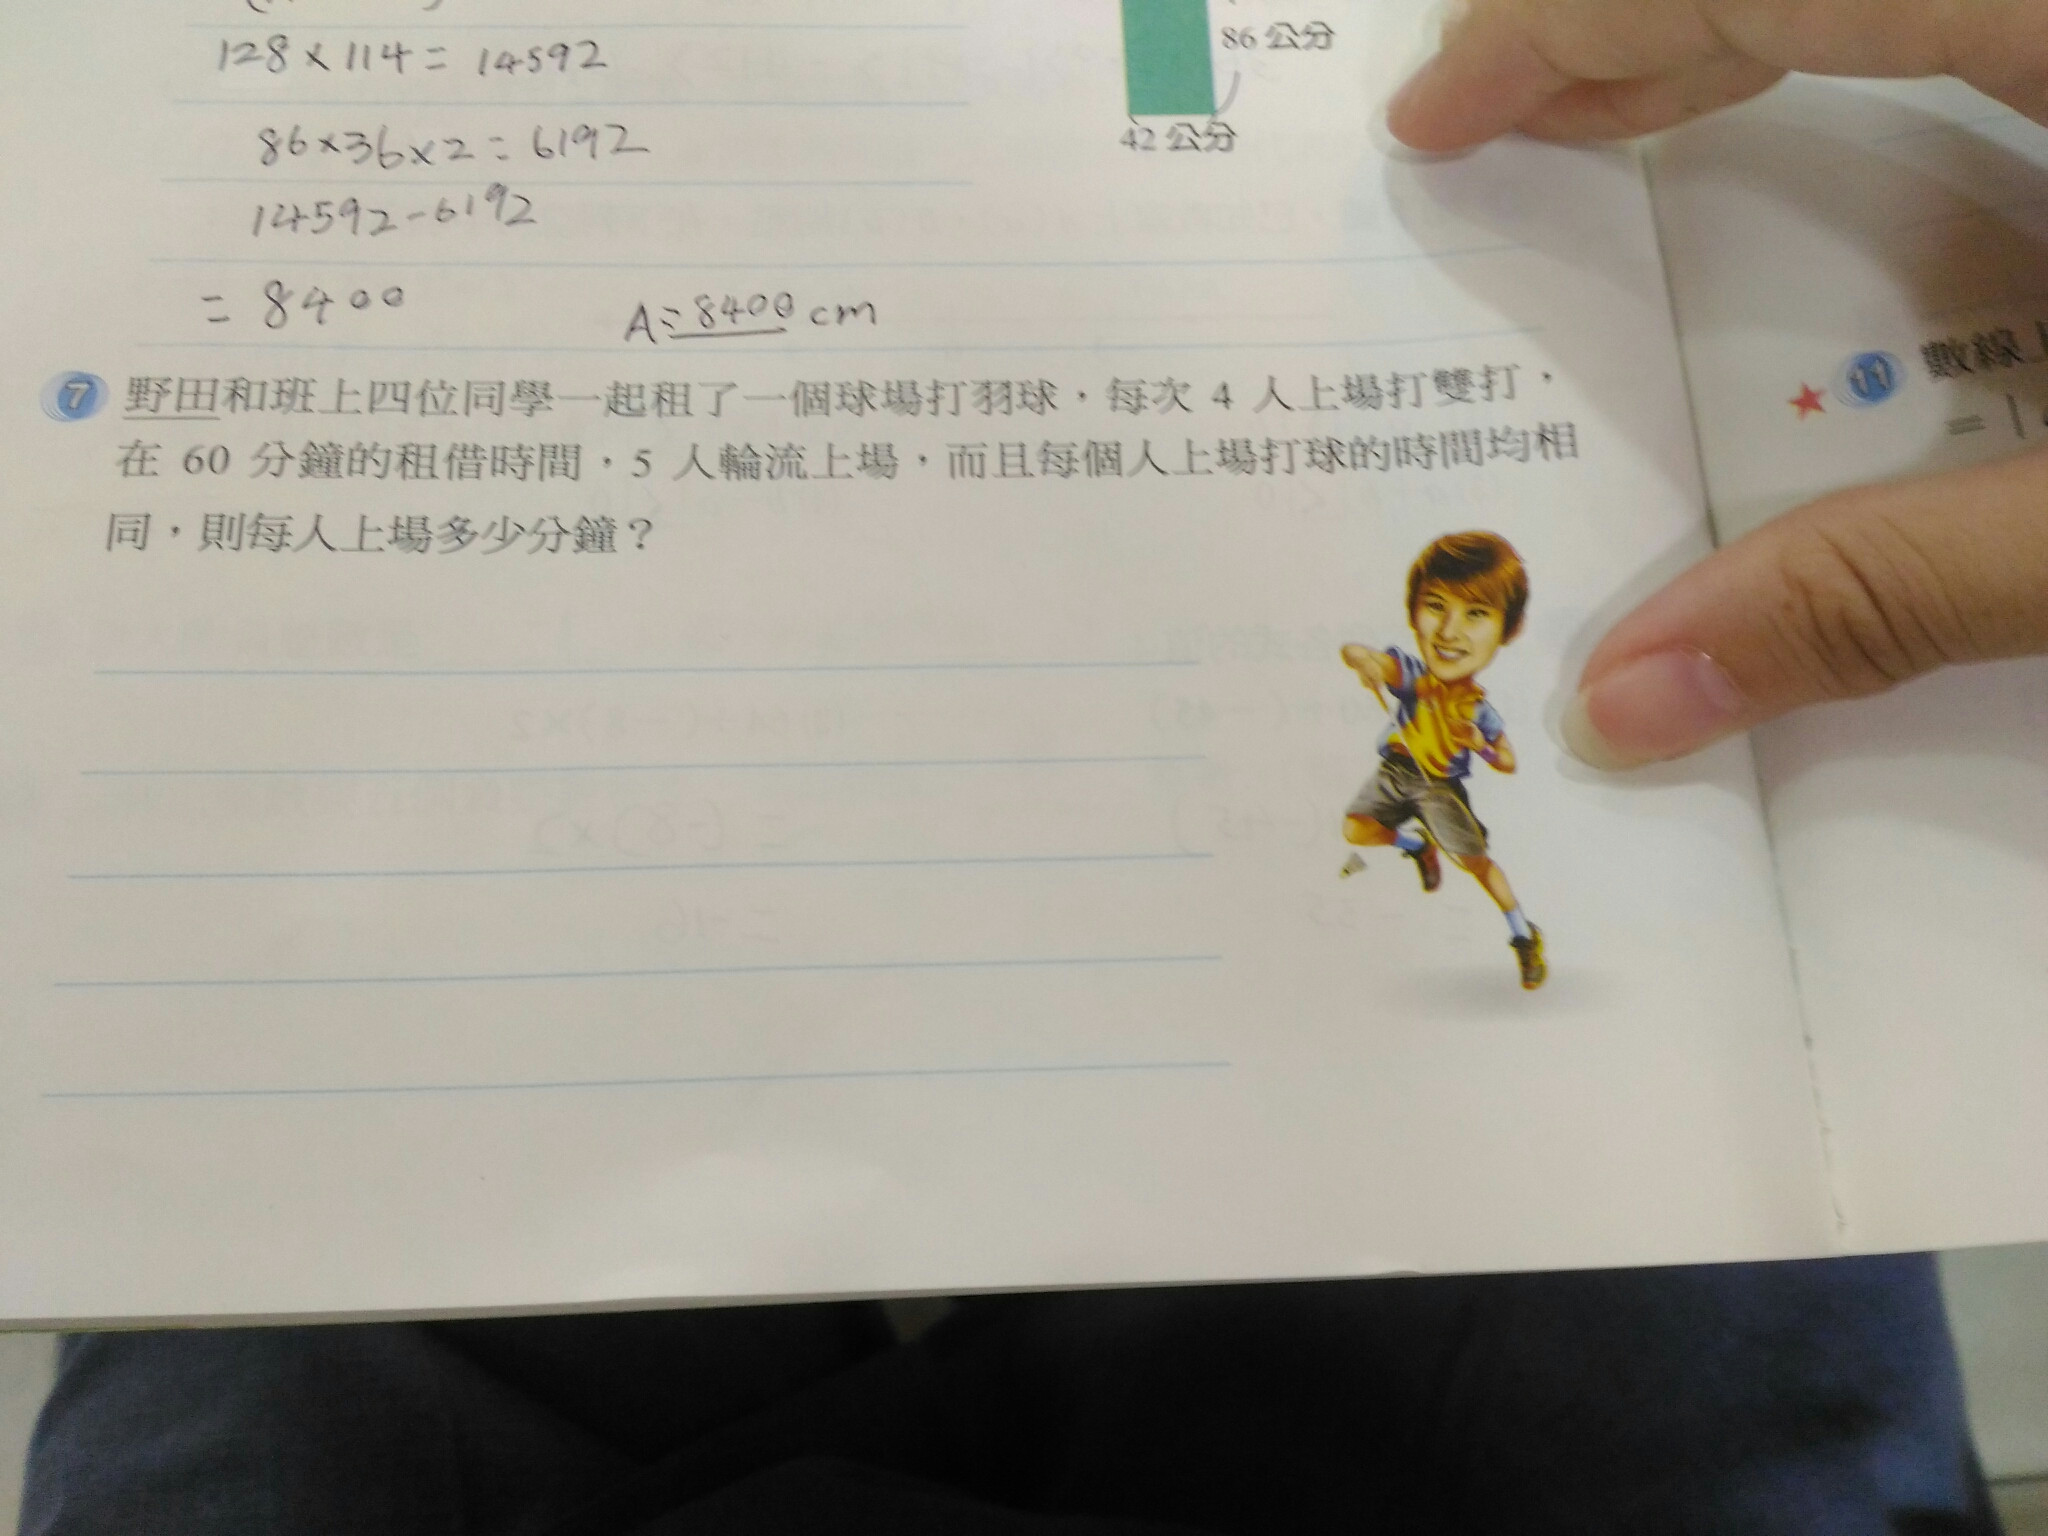 128×114=14592
86公分
86×36×2=6192
42公分
14592-6192
=8400
A=8400cm
7 野田和班上四位同學一起租了一個球場打羽球，每次 4 人上場打雙打，
在 60 分鐘的租借時間，5 人輪流上場，而且每個人上場打球的時間均相
同，則每人上場多少分鐘？
11 數線上
=|